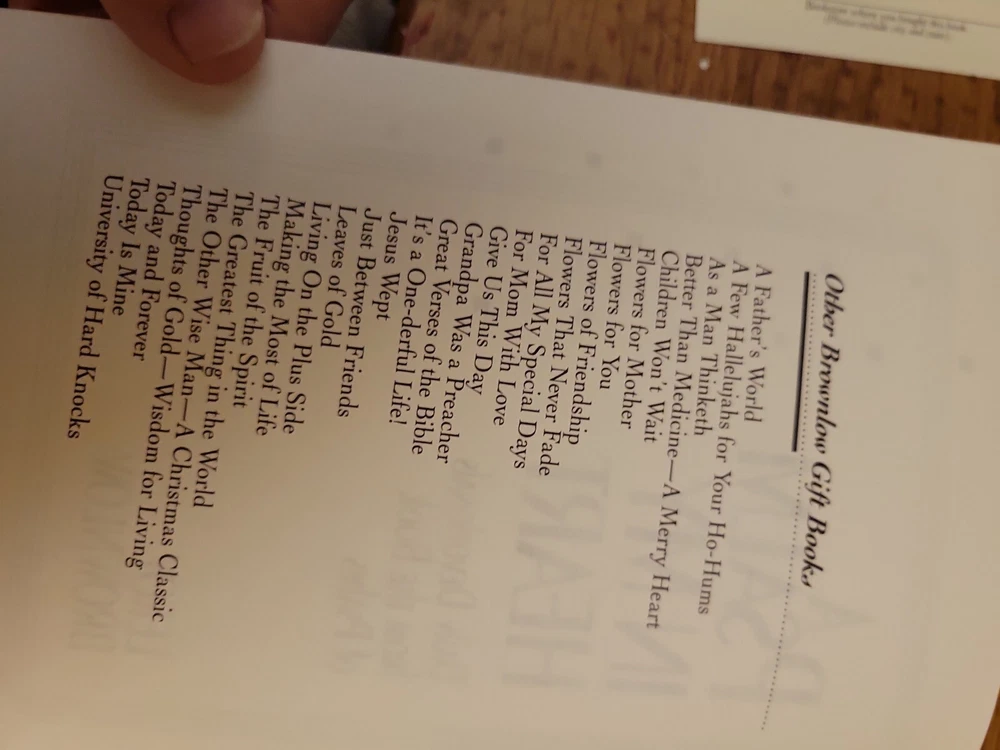 Other Brownlow Gift Books
A Father's World
A Few Hallelujahs for Your Ho-Hums
As a Man Thinketh
Better Than Medicine—A Merry Heart
Children Won't Wait
Flowers for Mother
Flowers for You
Flowers of Friendship
Flowers That Never Fade
For All My Special Days
For Mom With Love
Give Us This Day
Grandpa Was a Preacher
Great Verses of the Bible
It's a One-derful Life!
Jesus Wept
Just Between Friends
Leaves of Gold
Living On the Plus Side
Making the Most of Life
The Fruit of the Spirit
The Greatest Thing in the World
The Other Wise Man—A Christmas Classic
Thoughts of Gold—Wisdom for Living
Today and Forever
Today Is Mine
University of Hard Knocks